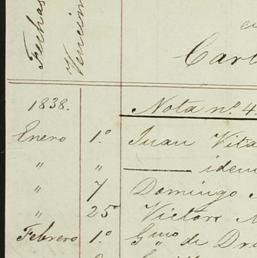 Fechas
Vencim
Cart
1838. Nota nº. 4
Enero 1º. Juan Vita
" " idem
" 7 Domingo
" 25 Victore
Febrero 1º. Gmo de Dr